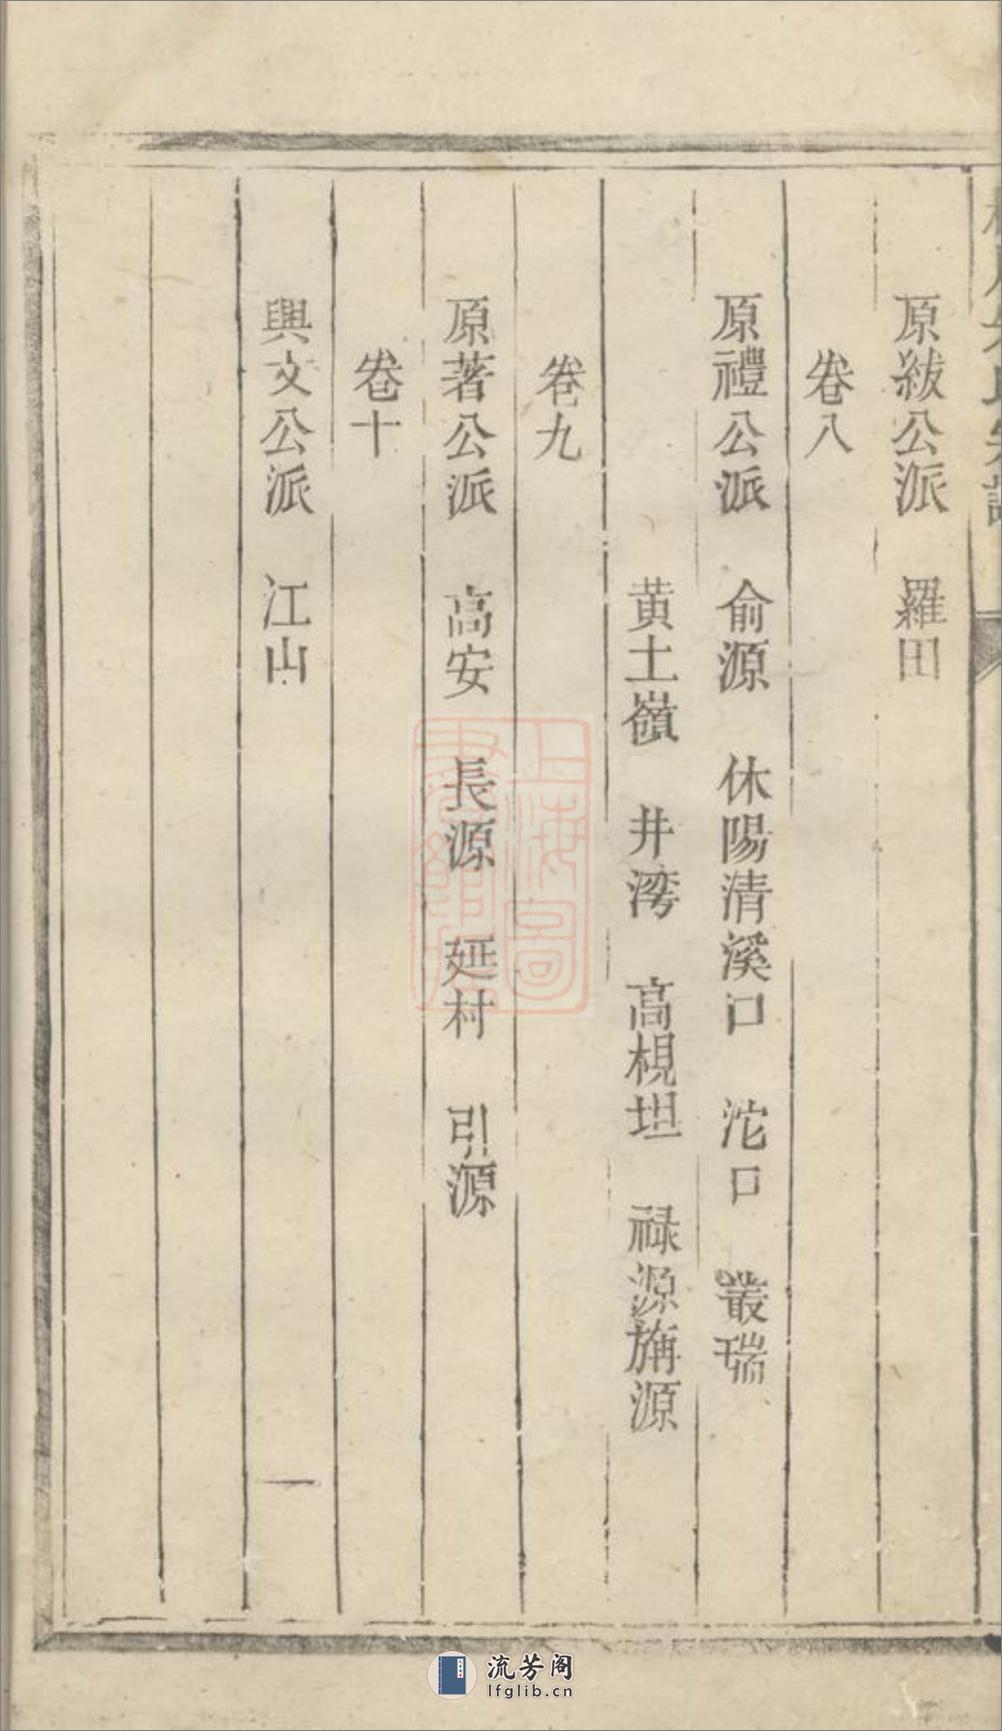 原紱公派　羅田
卷八
原禮公派　俞源　休陽清溪口　沱口　叢瑞
黄土嶺　井湾　高梘坦　禄源旃源
卷九
原著公派　高安　長源　延村　引源
卷十
興文公派　江山
一
上海圖書館藏
流芳阁
lfglib.cn